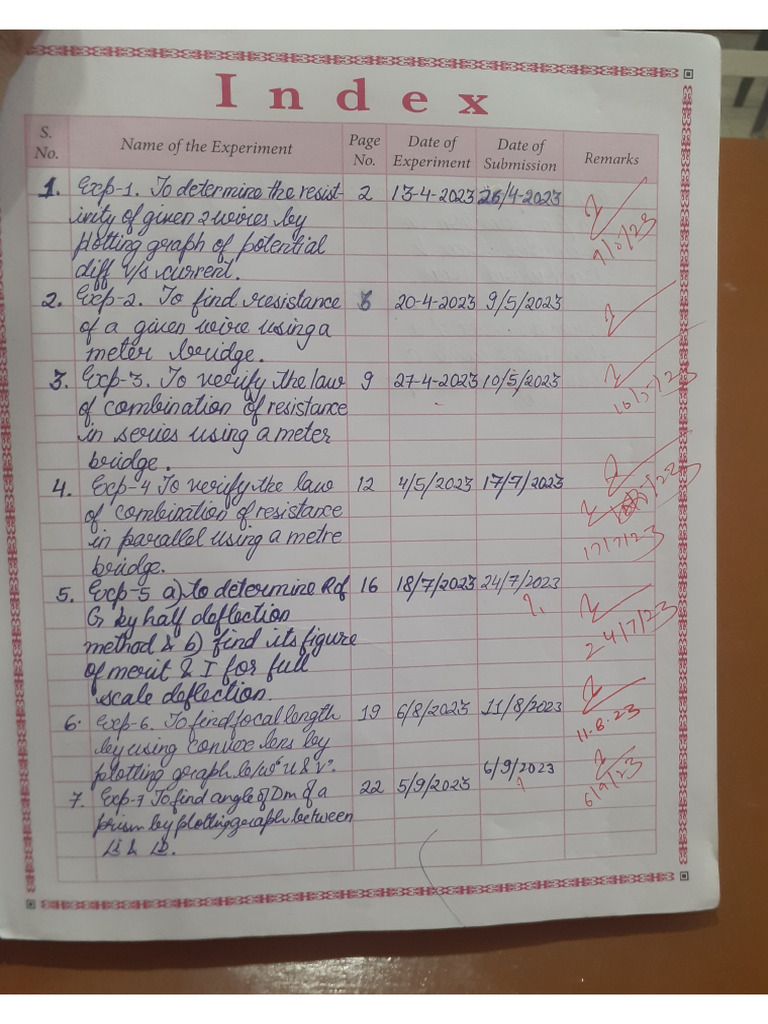 Index
S. No. Name of the Experiment Page No. Date of Experiment Date of Submission Remarks
1. Exp-1. To determine the resist- 2 13-4-2023 26/4-2023
ivity of given 2 wires by
plotting graph of potential 9/5/23
diff v/s current.
2. Exp-2. To find resistance 6 20-4-2023 9/5/2023
of a given wire using a
meter bridge.
3. Exp-3. To verify the law 9 27-4-2023 10/5/2023
of combination of resistance 16/5/23
in series using a meter
bridge.
4. Exp-4 To verify the law 12 4/5/2023 17/7/2023
of combination of resistance
in parallel using a metre 17/7/23
bridge.
5. Exp-5 a) to determine R of 16 18/7/2023 24/7/2023
G by half deflection
method & b) find its figure 24/7/23
of merit & I for full
scale deflection.
6. Exp-6. To find focal length 19 6/8/2023 11/8/2023
by using convex lens by 11.8.23
plotting graph b/w "u & v".
7. Exp-7 To find angle of Dm of a 22 5/9/2023 6/9/2023 6/9/23
prism by plotting graph between